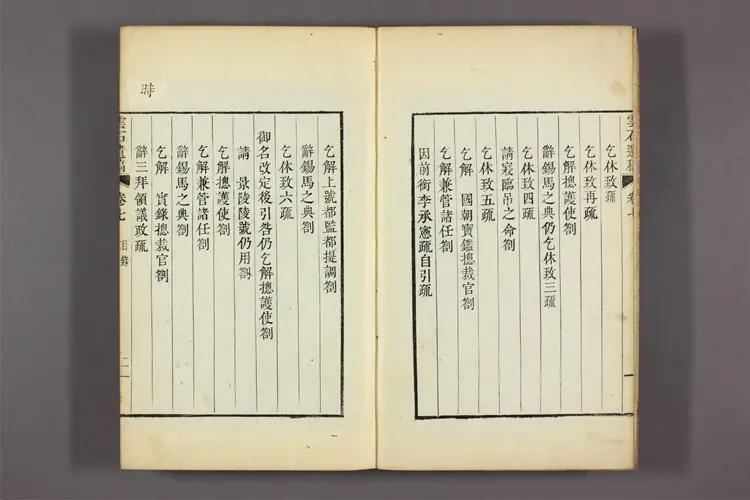 雲石遺稿 卷七 一
乞休致疏
乞休致再疏
乞解摠護使劄
辭錫馬之典仍乞休致三疏
乞休致四疏
請寢臨弔之命劄
乞休致五疏
乞解 國朝寶鑑摠裁官劄
乞解兼管諸任劄
因前銜李承憲疏自引疏
乞解上號都監都提調劄
辭錫馬之典劄
乞休致六疏
御名改定後引咎仍乞解摠護使劄
請 景陵陵號仍用劄
乞解摠護使劄
乞解兼管諸任劄
辭錫馬之典劄
乞解 實錄摠裁官劄
辭三拜領議政疏
雲石遺稿 卷七 目錄 二
時